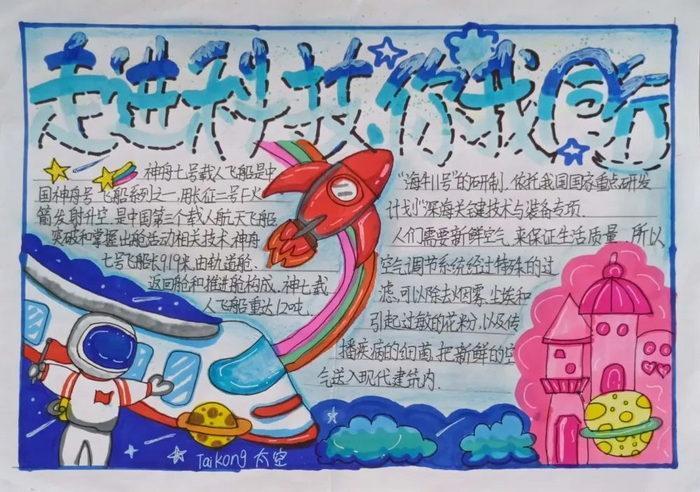 走进科技,你我同行
神舟七号载人飞船是中
国神舟号飞船系列之一,用长征二号F火
箭发射升空,是中国第三个载人航天飞船
突破和掌握出舱活动相关技术,神舟
七号飞船长9.19米,由轨道舱、
返回舱和推进舱构成,神七载
人飞船重达12吨.
"海牛11号"的研制.依托我国国家重点研发
计划"深海关键技术与装备专项.
人们需要新鲜空气,来保证生活质量.所以
空气调节系统经过特殊的过
滤,可以除去烟雾、尘埃和
引起过敏的花粉,以及传
播疾病的细菌.把新鲜的空
气送入现代建筑内.
Taikong 太空